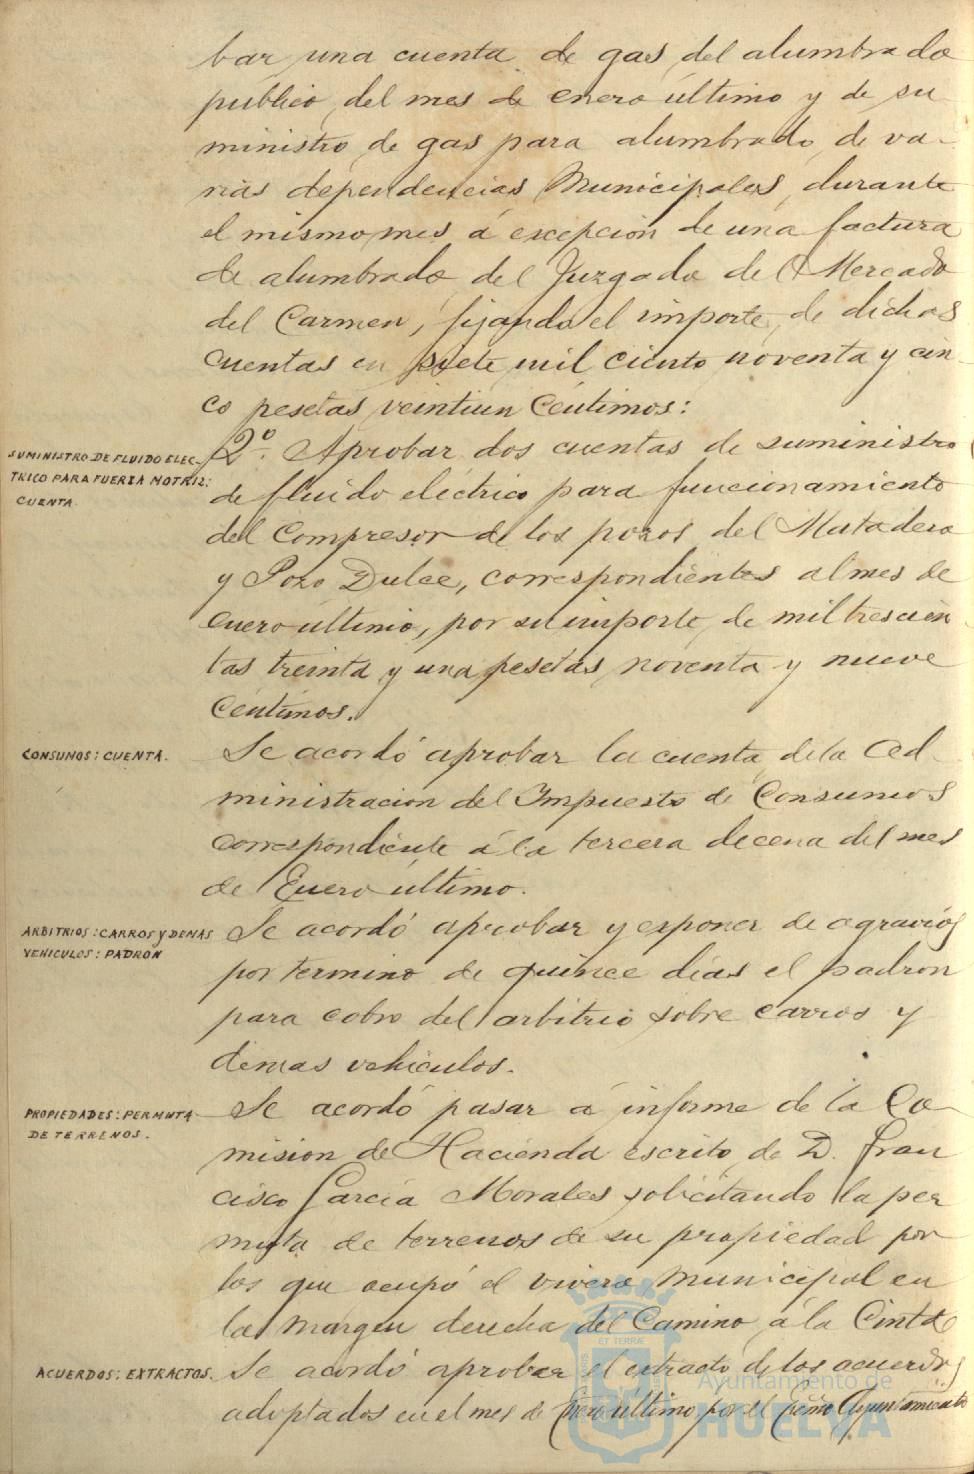 bar una cuenta de gas del alumbrado
publico del mes de enero último y de su
ministro de gas para alumbrado de va-
rias dependencias Municipales, durante
el mismo mes á excepcion de una factura
de alumbrado del Juzgado del Mercado
del Carmen, fijando el importe de dichas
cuentas en siete mil ciento noventa y cin-
co pesetas veintiun Céntimos:
SUMINISTRO DE FLUIDO ELEC-
TRICO PARA FUERZA MOTRIZ:
CUENTA.
2º. Aprobar dos cuentas de suministro
de fluido eléctrico para funcionamiento
del Compresor de los pozos del Matadero
y Pozo Dulce, correspondientes al mes de
enero último, por su importe de mil trescien
tas treinta y una pesetas noventa y nueve
Céntimos.
CONSUNOS: CUENTA.
Se acordó aprobar la cuenta de la Ad-
ministracion del Impuesto de Consumos
correspondiente á la tercera decena del mes
de Enero último.
ARBITRIOS: CARROS Y DEMAS
VEHICULOS: PADRÓN
Se acordó aprobar y esponer de agravios
por termino de quince días el padron
para cobro del arbitrio sobre carros y
demas vehiculos.
PROPIEDADES: PERMUTA
DE TERRENOS.
Se acordó pasar á informe de la Co-
mision de Hacienda escrito de D. Fran
cisco García Morales solicitando la per
muta de terrenos de su propiedad por
los que ocupó el vivero Municipal en
la margen derecha del Camino á la Cinta
ACUERDOS: EXTRACTOS.
Se acordó aprobar el extracto de los acuerdos
adoptados en el mes de Enero último por el Excmo Ayuntamiento
Ayuntamiento de
HUELVA